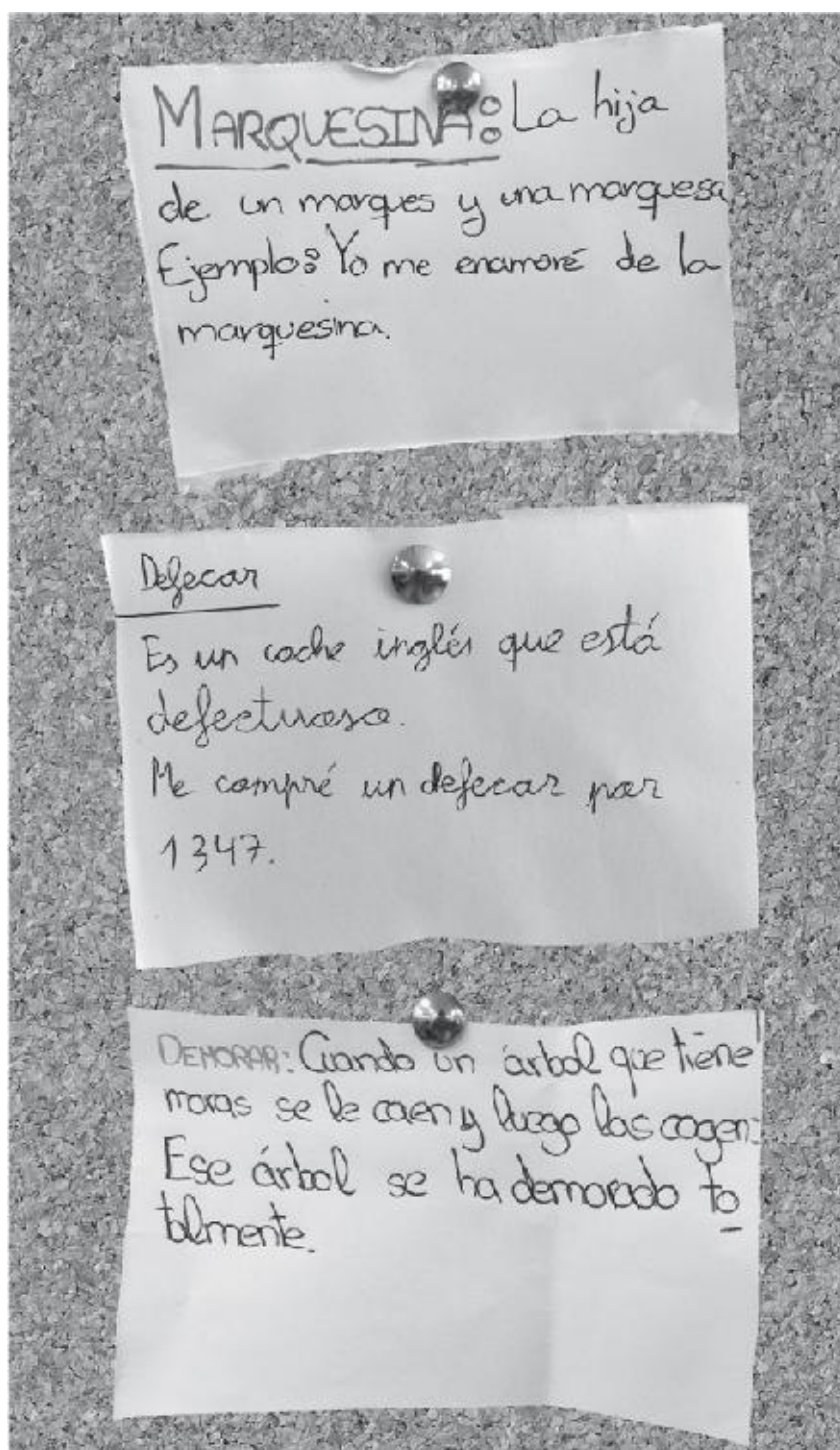 MARQUESINA: La hija
de un marques y una marquesa.
Ejemplo: Yo me enamoré de la
marquesina.
Defecar
Es un coche inglés que está
defectuoso.
Me compré un defecar por
1347.
DEMORAR: Cuando un árbol que tiene
moras se le caen y luego las cogen:
Ese árbol se ha demorado to
talmente.